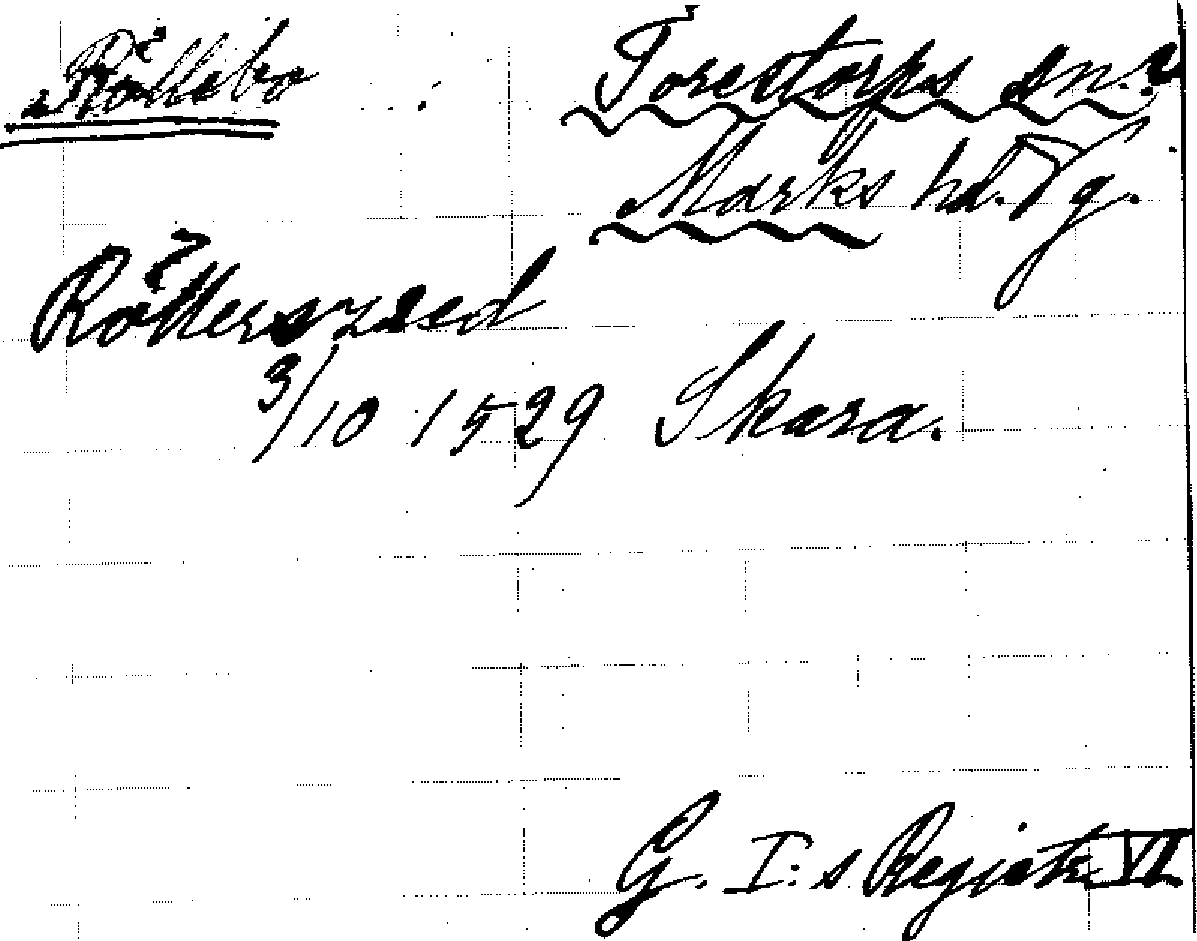 Rållsbo
Torestorps sn.
Marks hd. Vg.
Råtlersszæd
3/10 1529 Skara.
G. I:s Registr. VI